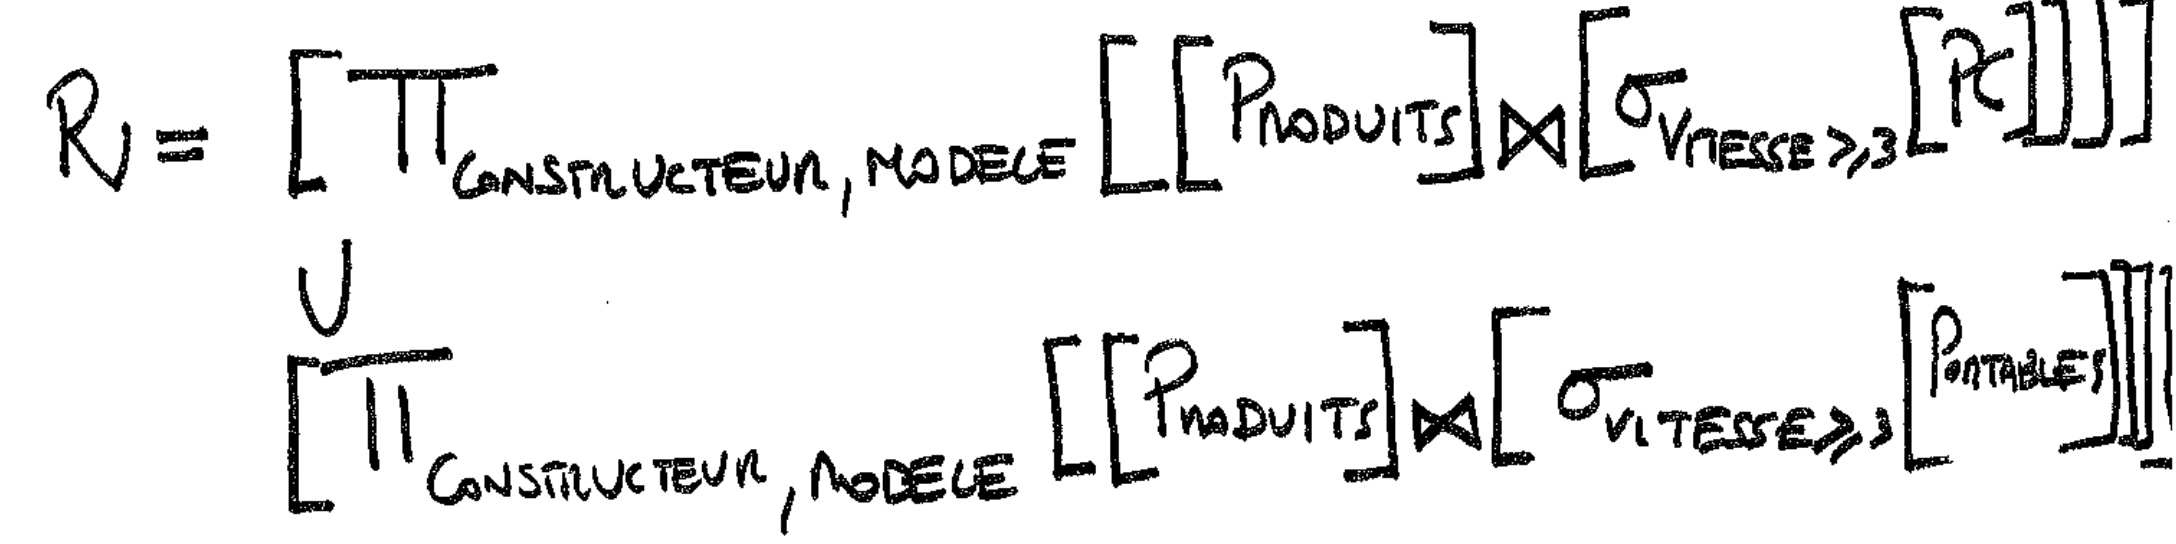 R = [π CONSTRUCTEUR, MODELE [[PRODUITS] ⋈ [σ VITESSE ≥ 3 [PC]]]]
∪
[π CONSTRUCTEUR, MODELE [[PRODUITS] ⋈ [σ VITESSE ≥ 3 [PORTABLES]]]]